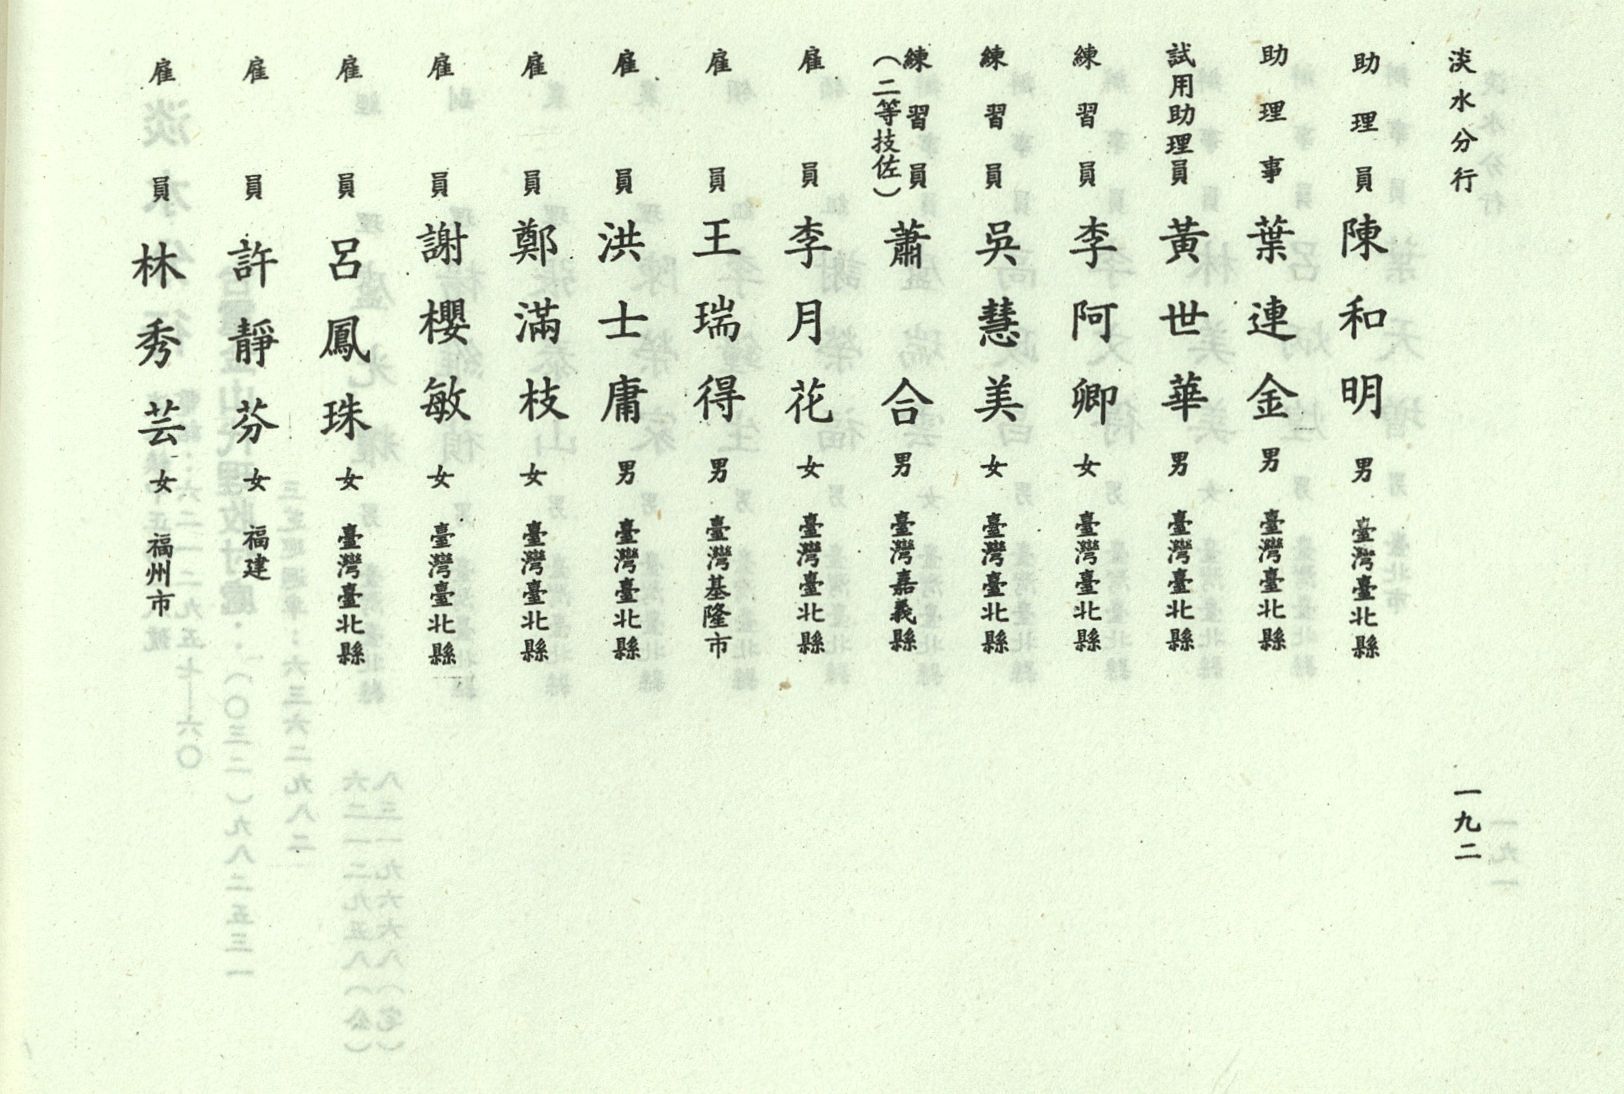 淡水分行
一九二
助理員 陳和明 男 臺灣臺北縣
助理事 葉連金 男 臺灣臺北縣
試用助理員 黃世華 男 臺灣臺北縣
練習員 李阿卿 女 臺灣臺北縣
練習員 吳慧美 女 臺灣臺北縣
練習員 蕭合 男 臺灣嘉義縣
（二等技佐）
雇員 李月花 女 臺灣臺北縣
雇員 王瑞得 男 臺灣基隆市
雇員 洪士庸 男 臺灣臺北縣
雇員 鄭滿枝 女 臺灣臺北縣
雇員 謝櫻敏 女 臺灣臺北縣
雇員 呂鳳珠 女 臺灣臺北縣
雇員 許靜芬 女 福建
雇員 林秀芸 女 福州市